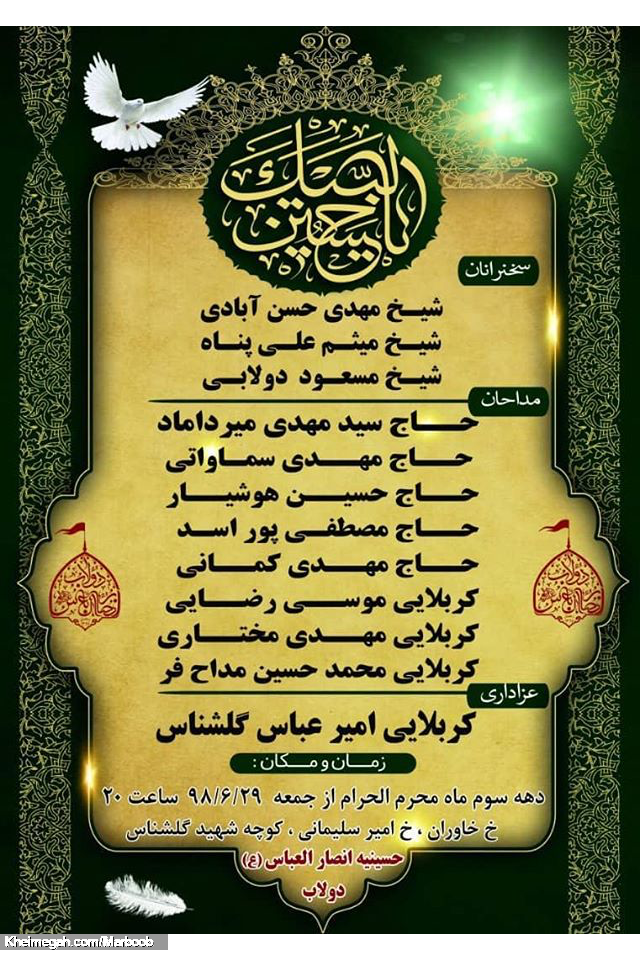 لبیک یا حسین
سخنرانان
شیخ مهدی حسن آبادی
شیخ میثم علی پناه
شیخ مسعود دولابی
مداحان
حاج سید مهدی میرداماد
حاج مهدی سماواتی
حاج حسین هوشیار
حاج مصطفی پور اسد
حاج مهدی کمانی
کربلایی موسی رضایی
کربلایی مهدی مختاری
کربلایی محمد حسین مداح فر
عزاداری
کربلایی امیر عباس گلشناس
زمان و مکان :
دهه سوم ماه محرم الحرام از جمعه ۹۸/۶/۲۹ ساعت ۲۰
خ خاوران ، خ امیر سلیمانی ، کوچه شهید گلشناس
حسینیه انصار العباس (ع)
دولاب
Kheimegah.com/Marboob